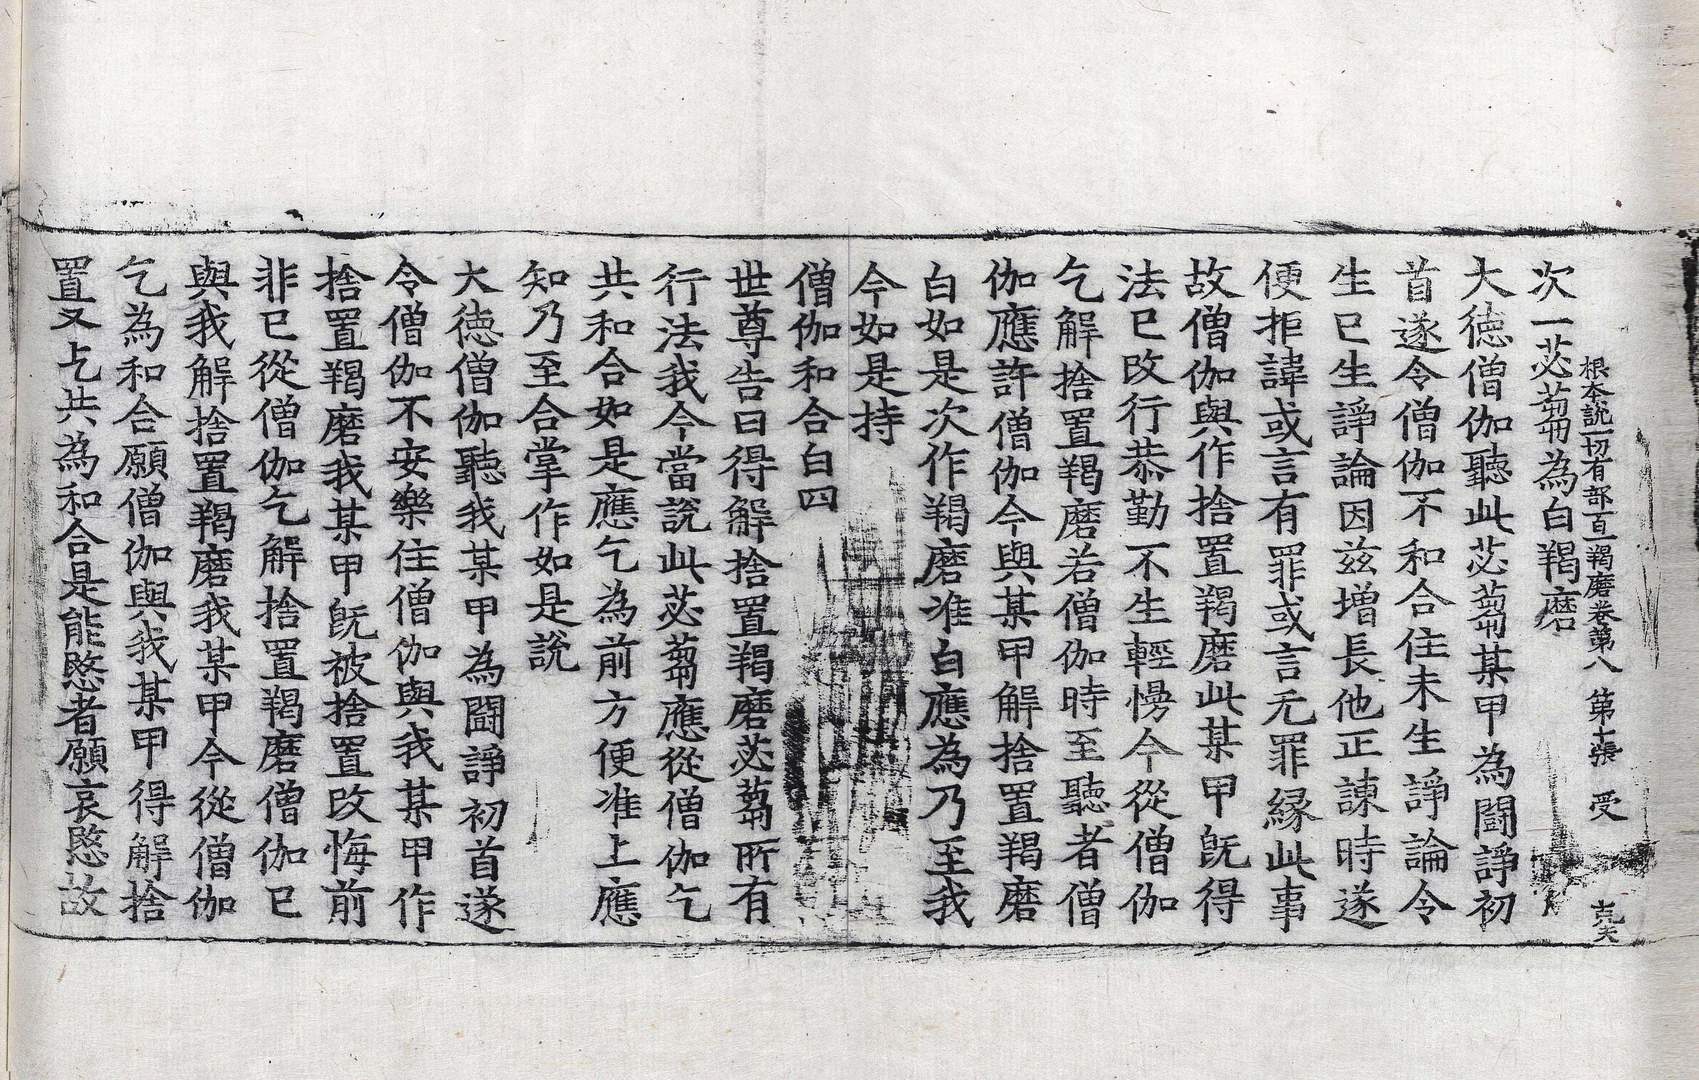 根本說一切有部百一羯磨卷第八　第十張　受
次一苾蒭為白羯磨
大德僧伽聽此苾蒭某甲為鬪諍初
首遂令僧伽不和合住未生諍論令
生已生諍論因茲增長他正諫時遂
便拒諱或言有罪或言无罪緣此事
故僧伽與作捨置羯磨此某甲既得
法已改行恭勤不生輕慢今從僧伽
乞解捨置羯磨若僧伽時至聽者僧
伽應許僧伽今與某甲解捨置羯磨
白如是次作羯磨准白應為乃至我
今如是持
僧伽和合白四
世尊告曰得解捨置羯磨苾蒭所有
行法我今當說此苾蒭應從僧伽乞
共和合如是應乞為前方便准上應
知乃至合掌作如是說
大德僧伽聽我某甲為鬪諍初首遂
令僧伽不安樂住僧伽與我某甲作
捨置羯磨我某甲既被捨置改悔前
非已從僧伽乞解捨置羯磨僧伽已
與我解捨置羯磨我某甲今從僧伽
乞為和合願僧伽與我某甲得解捨
置又乞共為和合是能愍者願哀愍故